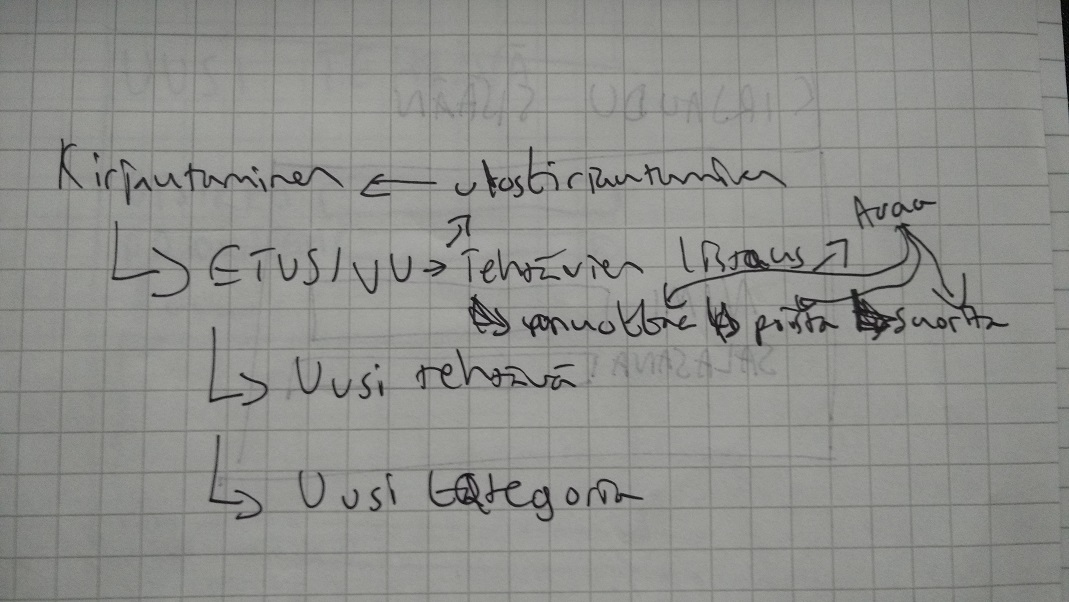 Kirjautuminen ← uloskirjautuminen
Avaa
ETUSIVU → Tehtävien listaus
muokkaa poista suorita
Uusi tehtävä
Uusi kategoria